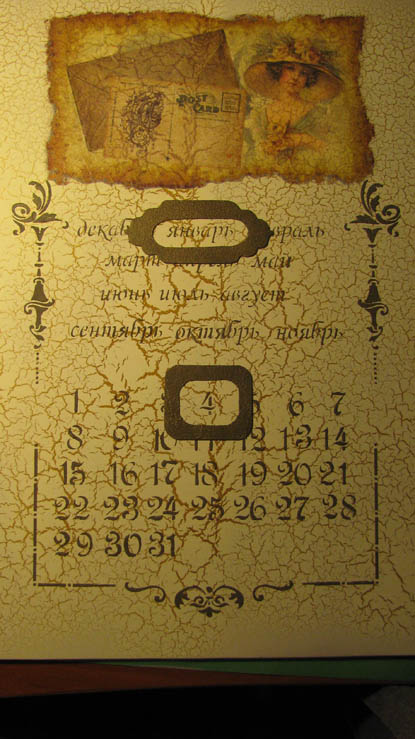 POST CARD
январь
март май
июнь июль август
сентябрь октябрь ноябрь
1 2 4 6 7
8 9 12 13 14
15 16 17 18 19 20 21
22 23 24 25 26 27 28
29 30 31